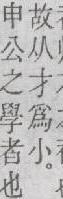 故从才爲小。
申公之學者也